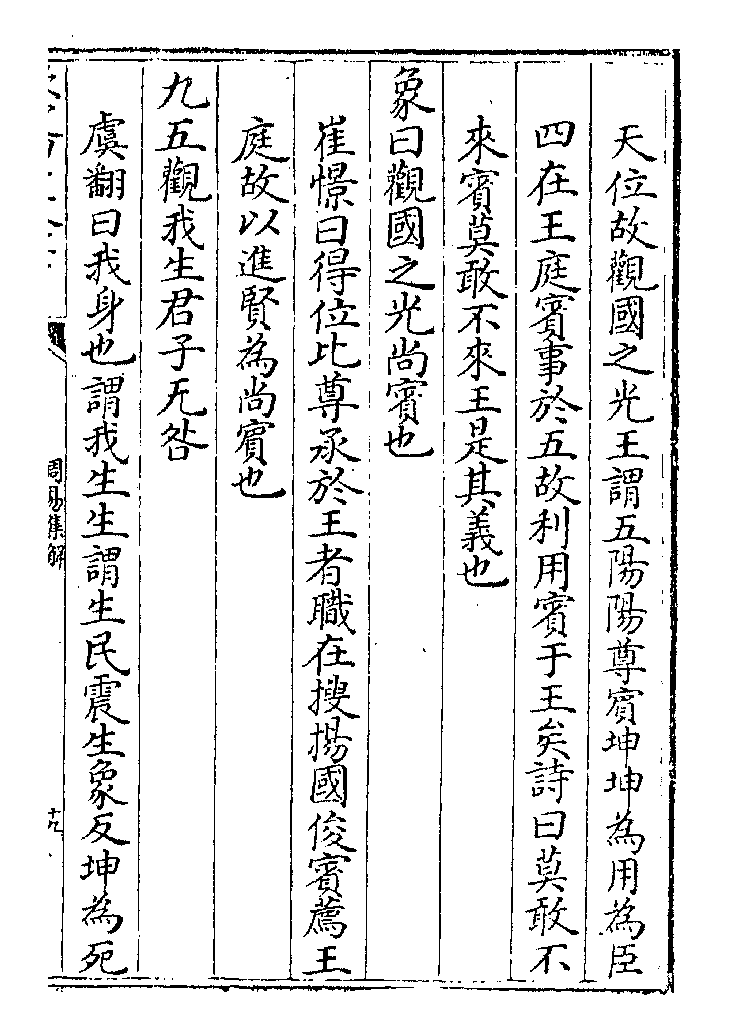 天位故觀國之光王謂五陽陽尊賓坤坤為用為臣
四在王庭賓事於五故利用賓于王矣詩曰莫敢不
來賓莫敢不來王是其義也
象曰觀國之光尚賓也
崔憬曰得位比尊承於王者職在搜揚國俊賓薦王
庭故以進賢為尚賓也
九五觀我生君子无咎
虞翻曰我身也謂我生生謂生民震生象反坤為死
周易集解
十九